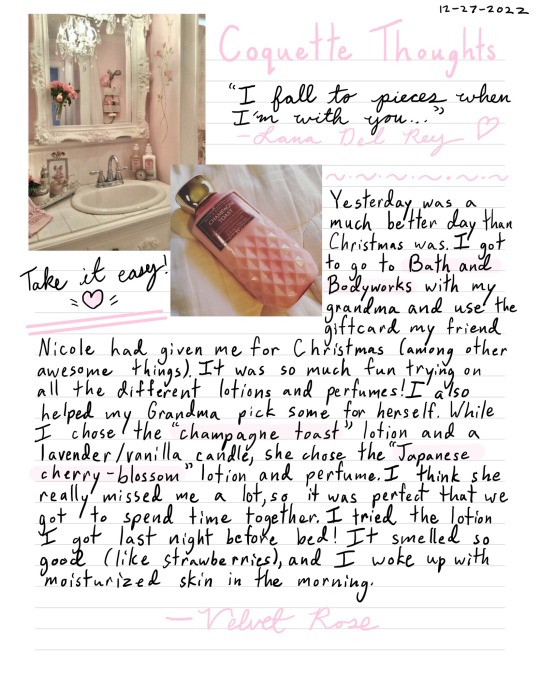 12-27-2022
Coquette Thoughts
"I fall to pieces when
I'm with you..."
-Lana Del Rey
Take it easy!
CHAMPAGNE
TOAST
Yesterday was a
much better day than
Christmas was. I got
to go to Bath and
Bodyworks with my
grandma and use the
giftcard my friend
Nicole had given me for Christmas (among other
awesome things). It was so much fun trying on
all the different lotions and perfumes! I also
helped my Grandma pick some for herself. While
I chose the "champagne toast" lotion and a
lavender/vanilla candle, she chose the "Japanese
cherry-blossom" lotion and perfume. I think she
really missed me a lot, so it was perfect that we
got to spend time together. I tried the lotion
I got last night before bed! It smelled so
good (like strawberries), and I woke up with
moisturized skin in the morning.
-Velvet Rose